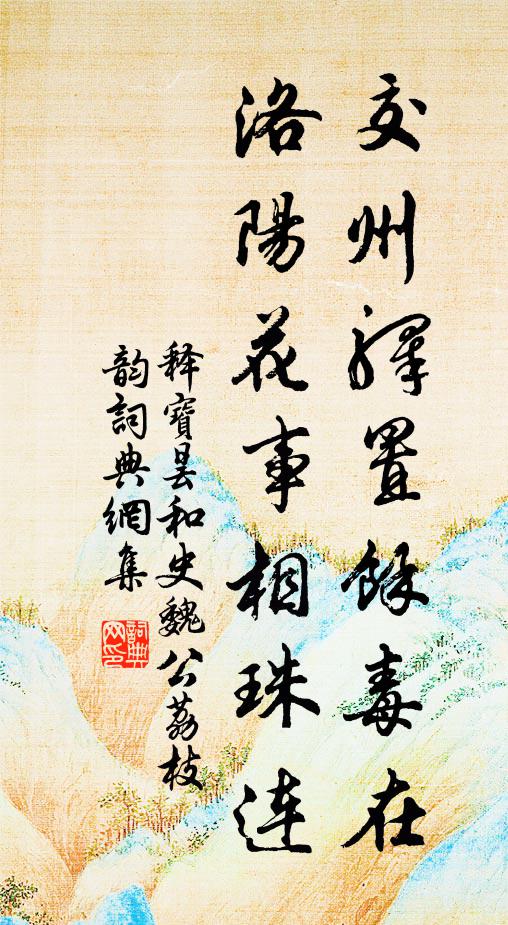 交州驛置餘毒在
洛陽花事相珠連
釋寶曇和史魏公荔枝
韵詞典網集
詞典網印